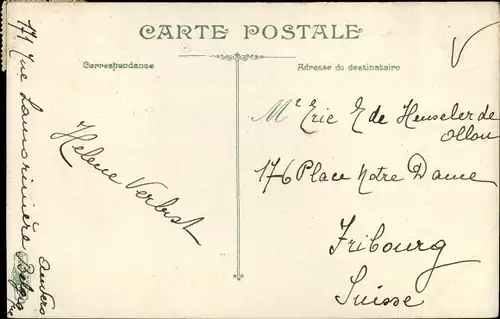 CARTE POSTALE
Correspondance
Adresse du destinataire
Mr Eric E de Henseler de
Ollon
176 Place Notre Dame
Fribourg
Suisse
Helene Verbist
171 Rue Lamorinière
Anvers